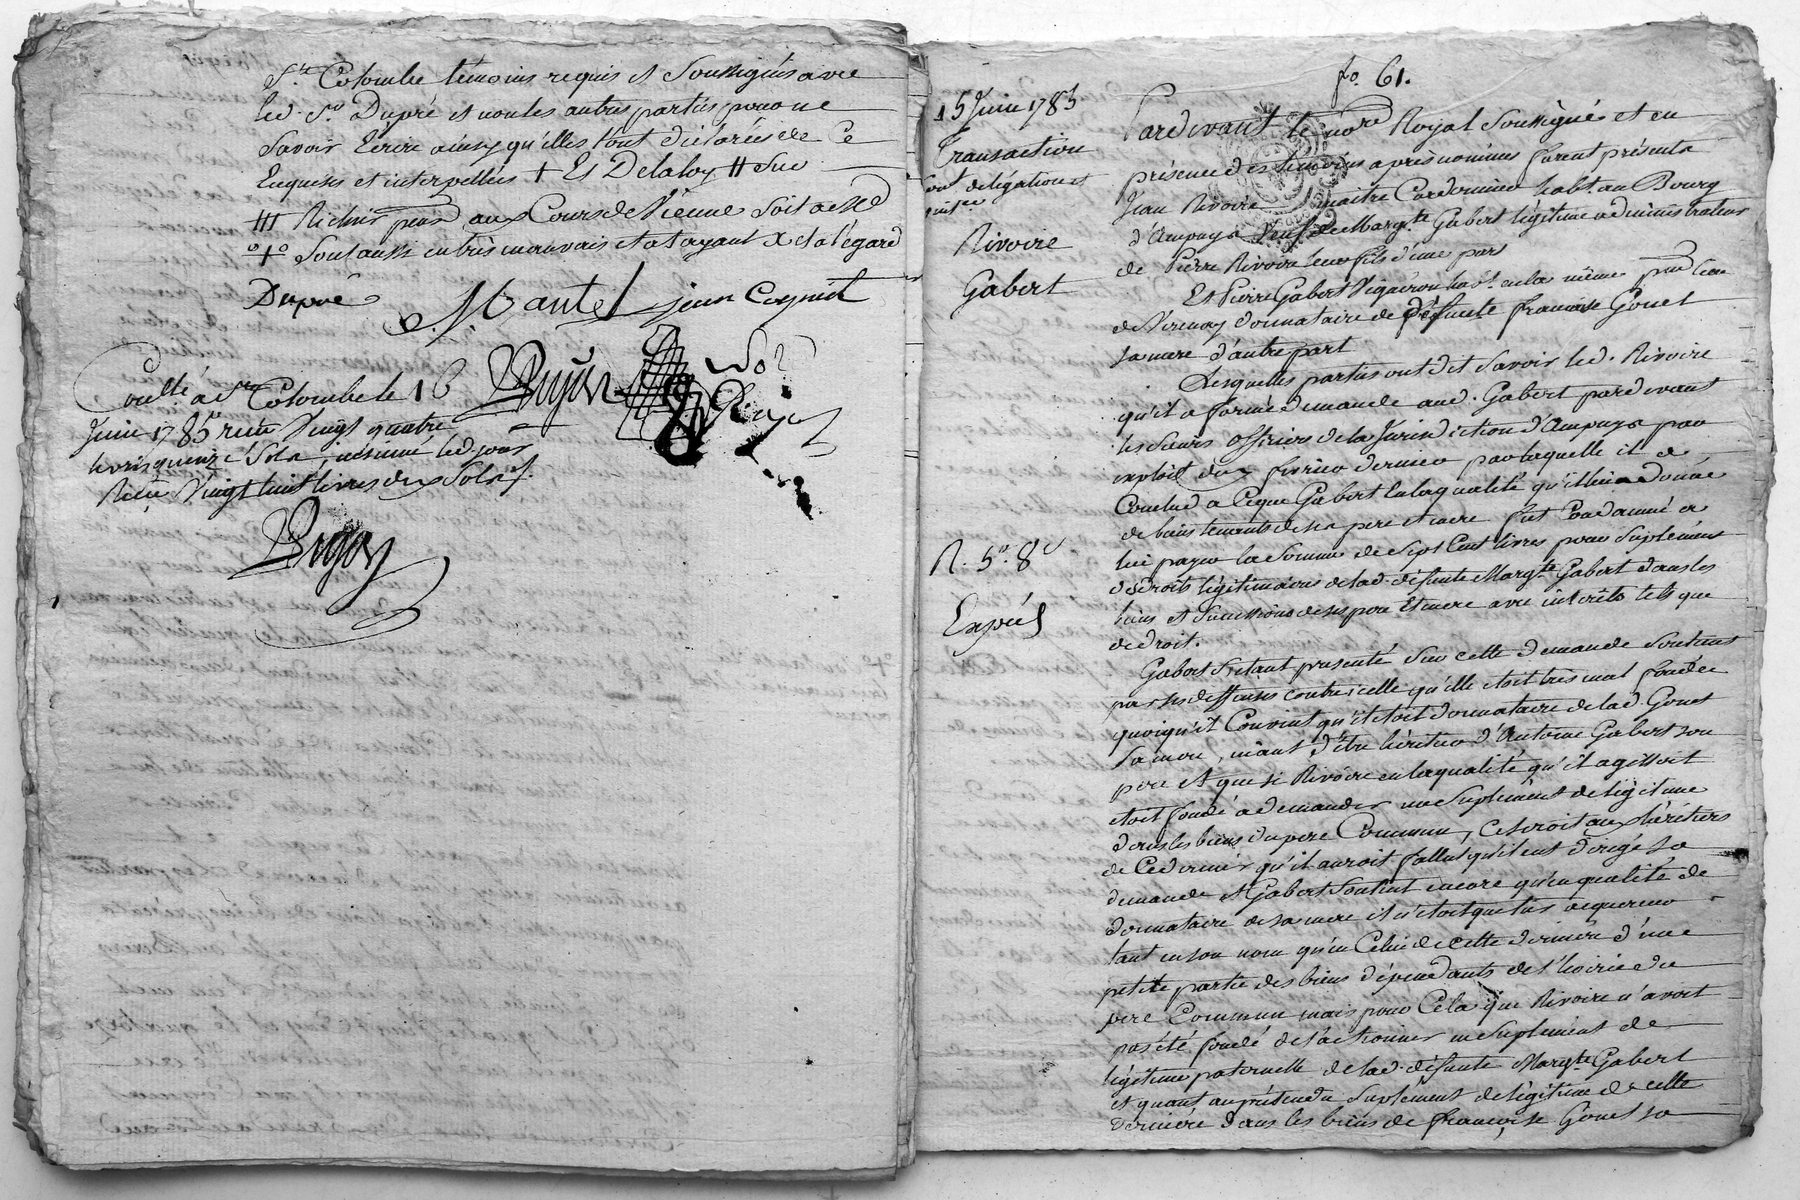 Ste Colombe témoins requis et Soussignés avec
led. Sr. Dupré et non les autres parties pour ne
Savoir Ecrire ainsy qu'elles l'ont déclaré de Ce
Enquises et interpellées + Et Delaloy # Sur
aux Cours de Vienne Soit a
Sont aussi en très mauvais état ayant X et a l'égard
Dupré Mantel jean Cognet
Collé a Ste Colombe le 16
Juin 1785 reçu Vingt quatre
livres quinze Sols, insinué led. jour
Reçu Vingt huit livres dix Sols
fo. 61.
15 Juin 1785
Transaction
délégation et
Rivoire
Gabert
R. 5s. 8d
Expéd
Pardevant le nore Royal Soussigné et en
présence des témoins après nommés furent présents
Jean Rivoire maître Cordonnier habt. au Bourg
d'Ampuys veuf de Margte Gabert légitime administrateur
de Pierre Rivoire leur fils d'une part
Et Pierre Gabert Vigneron habt. en la même
de Verenay donnataire de défunte françoise Gonet
sa mere d'autre part
Lesquelles parties ont dit Savoir led. Rivoire
qu'il a formé demande aud. Gabert pardevant
les Sieurs officiers de la Jurisdiction d'Ampuys par
exploit du x fevrier dernier par laquelle il a
Conclud a Ceque Gabert En la qualité qu'il lui a donné
de bien tenants de ses pere et mere fut Condamné a
lui payer la Somme de Sept Cent livres pour Suplément
de droits légitimaires de lad. défunte Margte Gabert dans les
biens et Successions de ses pere Et mere avec intérêts tels que
de droit.
Gabert S'etant presenté Sur cette demande Soutint
par ses deffenses contre icelle qu'elle étoit très mal fondée
quoiqu'il Convint qu'il étoit donnataire de lad. Gonet
Sa mere, niant d'être héritier d'Antoine Gabert son
pere et que si Rivoire en la qualité qu'il agissoit
étoit fondé a demander un Suplément de légitime
dans les biens du pere Commun, Ce seroit aux héritiers
de Ce dernier qu'il auroit fallut qu'il eut dirigé sa
demande et Gabert Soutint encore qu'en qualité de
donnataire de sa mere il n'étoit que tiers acquereur
tant en son nom qu'en Celui de cette derniere d'une
petite partie des biens dépendants de l'hoirie du
pere Commun mais pour Cela que Rivoire n'avoit
pas été fondé de l'actionner en Suplément de
légitime paternelle de lad. défunte Margte Gabert
et quant au prétendu Suplément de légitime de cette
derniere dans les biens de françoise Gonet sa